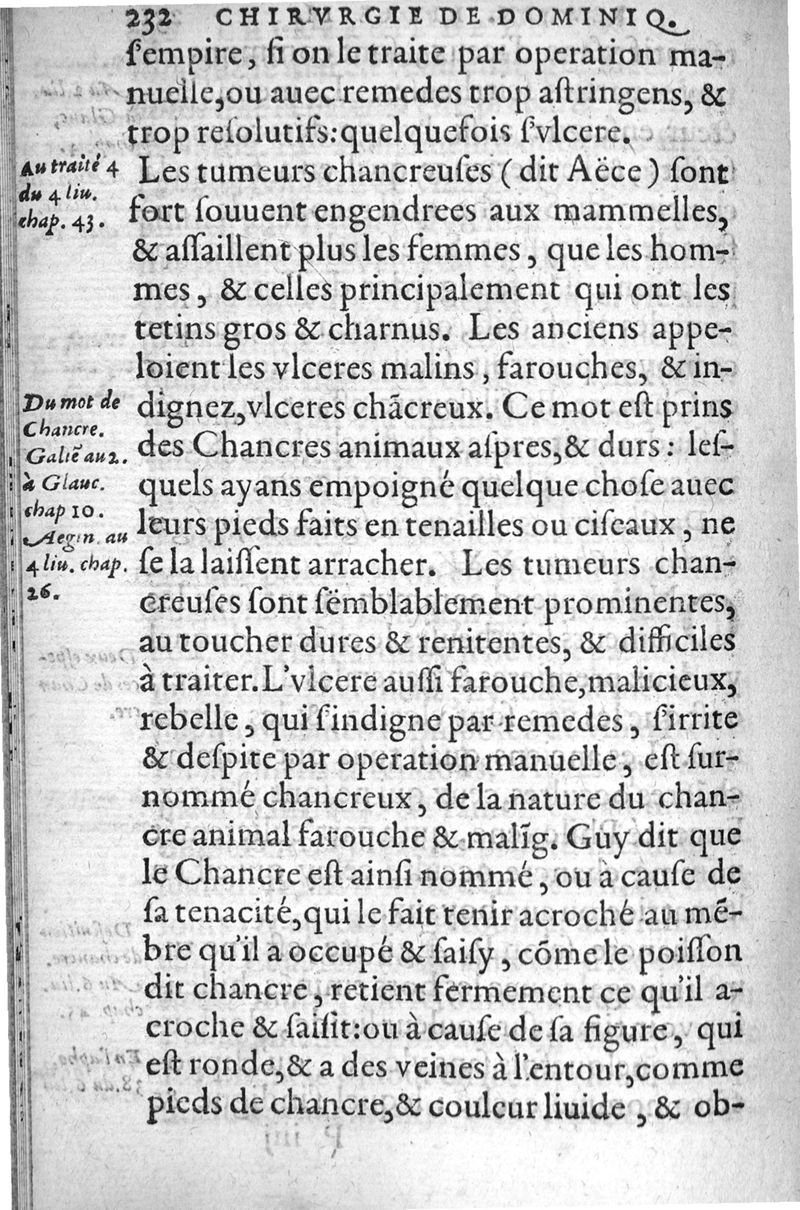 232 CHIRVRGIE DE DOMINIQ.
ſempire, ſi on le traite par operation ma-
nuelle,ou auec remedes trop aſtringens, &
trop reſolutifs:quelquefois ſvlcere.
Les tumeurs chancreuſes ( dit Aëce ) ſont
fort ſouuent engendrees aux mammelles,
& aſſaillent plus les femmes, que les hom-
mes, & celles principalement qui ont les
tetins gros & charnus. Les anciens appe-
loient les vlceres malins, farouches, & in-
dignez,vlceres chãcreux. Ce mot eſt prins
des Chancres animaux aſpres,& durs: leſ-
quels ayans empoigné quelque choſe auec
leurs pieds faits en tenailles ou ciſeaux, ne
ſe la laiſſent arracher. Les tumeurs chan-
creuſes ſont ſëmblablement prominentes,
au toucher dures & renitentes, & difficiles
à traiter.L'vlcere auſſi farouche,malicieux,
rebelle, qui ſindigne par remedes, ſirrite
& deſpite par operation manuelle, eſt ſur-
nommé chancreux, de la nature du chan-
cre animal farouche & malĩg. Guy dit que
le Chancre eſt ainſi nommé, ou à cauſe de
ſa tenacité,qui le fait tenir acroché au mẽ-
bre qu'il a occupé & ſaiſy, cõme le poiſſon
dit chancre, retient fermement ce qu'il a-
croche & ſaiſit:ou à cauſe de ſa figure, qui
eſt ronde,& a des veines à l'entour,comme
pieds de chancre,& couleur liuide, & ob-
Au traité 4
du 4 liu.
chap. 43.
Du mot de
Chancre.
Galiẽ au 2.
à Glauc.
chap 10.
Aegin. au
4 liu. chap.
26.